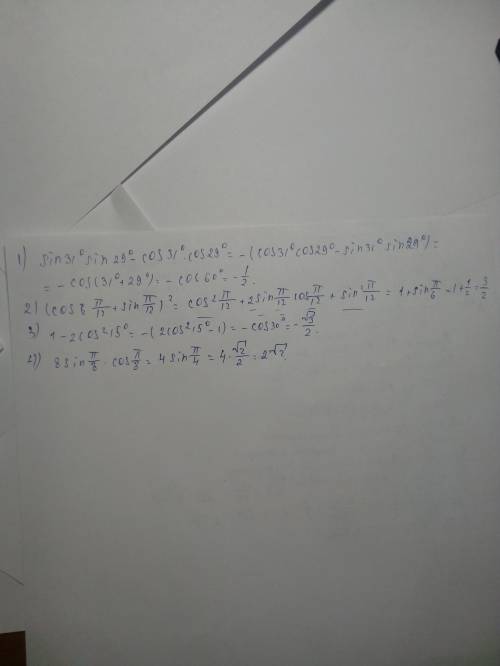 1) sin31° sin29° - cos31° · cos29° = -(cos31° cos29° - sin31° sin29°) =
= - cos(31° + 29°) = - cos60° = - 1/2.
2) (cos π/12 + sin π/12)² = cos² π/12 + 2 sin π/12 cos π/12 + sin² π/12 = 1 + sin π/6 = 1 + 1/2 = 3/2
3) 1 - 2cos²15° = -(2cos²15° - 1) = - cos30° = - √3/2.
8 sin π/8 · cos π/8 = 4 sin π/4 = 4 · √2/2 = 2√2.